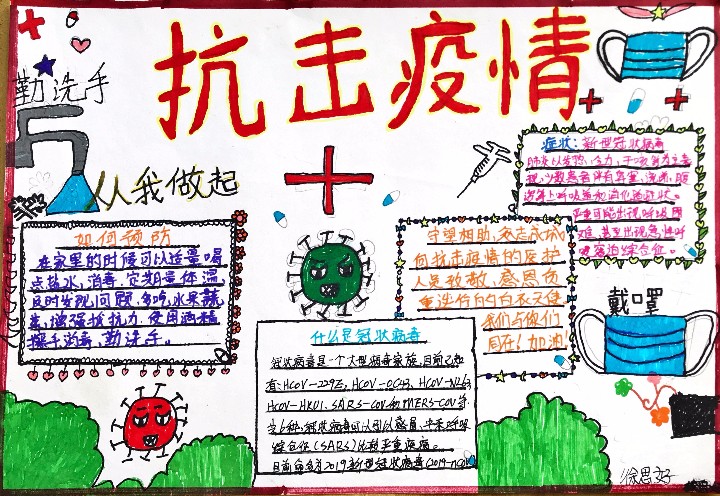 抗击疫情
勤洗手
从我做起
如何预防
在家里的时候可以适量喝
点盐水,消毒,定期量体温,
及时发现问题,多吃水果蔬
菜,增强抵抗力,使用酒精
搓手消毒 勤洗手。
什么是冠状病毒
冠状病毒是一个大型病毒家族,目前已知
有HCOV-229E, HCOV-OC43, HCOV-NL63
HCOV-HKU1, SARS-COV和MERS-COV等
综合征(SARS)比较严重疾病。
目前命名为2019新型冠状病毒(2019-nCo
守望相助,众志成城
向抗击疫情的医护
人员致敬,感恩负
重逆行的白衣天使
我们与你们
同在!加油
症状:新型冠状病毒
肺炎以发热、乏力、干咳为主要表
现,少数患者伴有鼻塞、流涕、腹
泻等上呼吸道和消化道症状。
严重可能出现呼吸困
难,甚至出现急性呼
吸窘迫综合征。
戴口罩